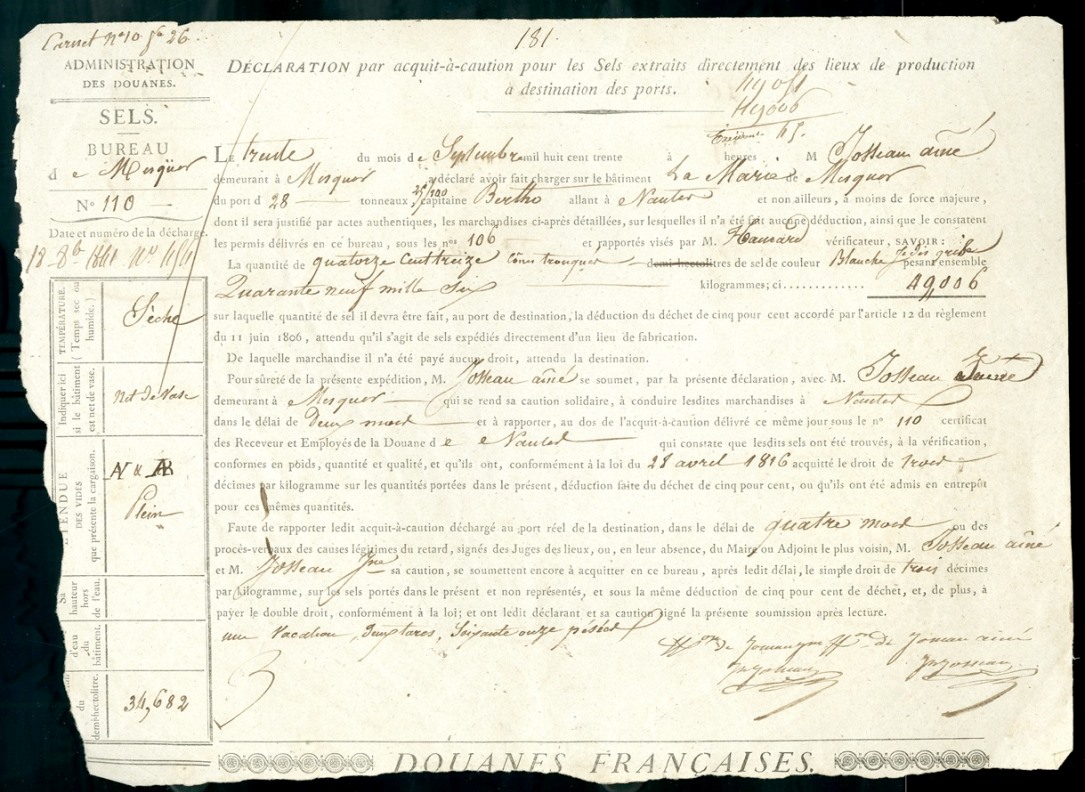 Carnet n° 10 f° 26
181.
ADMINISTRATION
DES DOUANES.
SELS.
BUREAU
d e Mesquer
N° 110
Date et numéro de la décharge.
DÉCLARATION par acquit-à-caution pour les Sels extraits directement des lieux de production
à destination des ports.
49006
65.
LE trente du mois de Septembre mil huit cent trente à heures M Josseau aîné
demeurant à Mesquer a déclaré avoir fait charger sur le bâtiment La Marie de Mesquer
du port d 28 tonneaux 25/100 capitaine Bertho allant à Nantes et non ailleurs, à moins de force majeure,
dont il sera justifié par actes authentiques, les marchandises ci-après détaillées, sur lesquelles il n'a été fait aucune déduction, ainsi que le constatent
les permis délivrés en ce bureau, sous les nos 106 et rapportés visés par M. Hamard vérificateur, SAVOIR:
La quantité de quatorze cent treize cônes tronqués demi-hectolitres de sel de couleur Blanche pesant ensemble
Quarante neuf mille six kilogrammes; ci............ 49,006
sur laquelle quantité de sel il devra être fait, au port de destination, la déduction du déchet de cinq pour cent accordé par l'article 12 du règlement
du 11 juin 1806, attendu qu'il s'agit de sels expédiés directement d'un lieu de fabrication.
De laquelle marchandise il n'a été payé aucun droit, attendu la destination.
Pour sûreté de la présente expédition, M. Josseau aîné se soumet, par la présente déclaration, avec M. Josseau Jeune
demeurant à Mesquer qui se rend sa caution solidaire, à conduire lesdites marchandises à Nantes
dans le délai de deux mois et à rapporter, au dos de l'acquit-à-caution délivré ce même jour sous le n° 110 certificat
des Receveur et Employés de la Douane d e Nantes qui constate que lesdits sels ont été trouvés, à la vérification,
conformes en poids, quantité et qualité, et qu'ils ont, conformément à la loi du 28 avril 1816 acquitté le droit de trois
décimes par kilogramme sur les quantités portées dans le présent, déduction faite du déchet de cinq pour cent, ou qu'ils ont été admis en entrepôt
pour ces mêmes quantités.
Faute de rapporter ledit acquit-à-caution déchargé au port réel de la destination, dans le délai de quatre mois ou des
procès-verbaux des causes légitimes du retard, signés des Juges des lieux, ou, en leur absence, du Maire ou Adjoint le plus voisin, M. Josseau aîné
et M. Josseau Jne sa caution, se soumettent encore à acquitter en ce bureau, après ledit délai, le simple droit de trois décimes
par kilogramme, sur les sels portés dans le présent et non représentés, et sous la même déduction de cinq pour cent de déchet, et, de plus, à
payer le double droit, conformément à la loi; et ont ledit déclarant et sa caution signé la présente soumission après lecture.
une vacation, deux tares, soixante onze pesées
TEMPÉRATURE.
( Temps sec ou
humide. )
Sèche
Indiquer ici
si le bâtiment
est net de vase.
net de vase
ÉTENDUE
DES VIDES
que présente la cargaison.
AV & AR
Plein
Sa
hauteur
hors
de l'eau.
d'eau
du
bâtiment.
du
demi-hectolitre.
34,682
DOUANES FRANÇAISES.